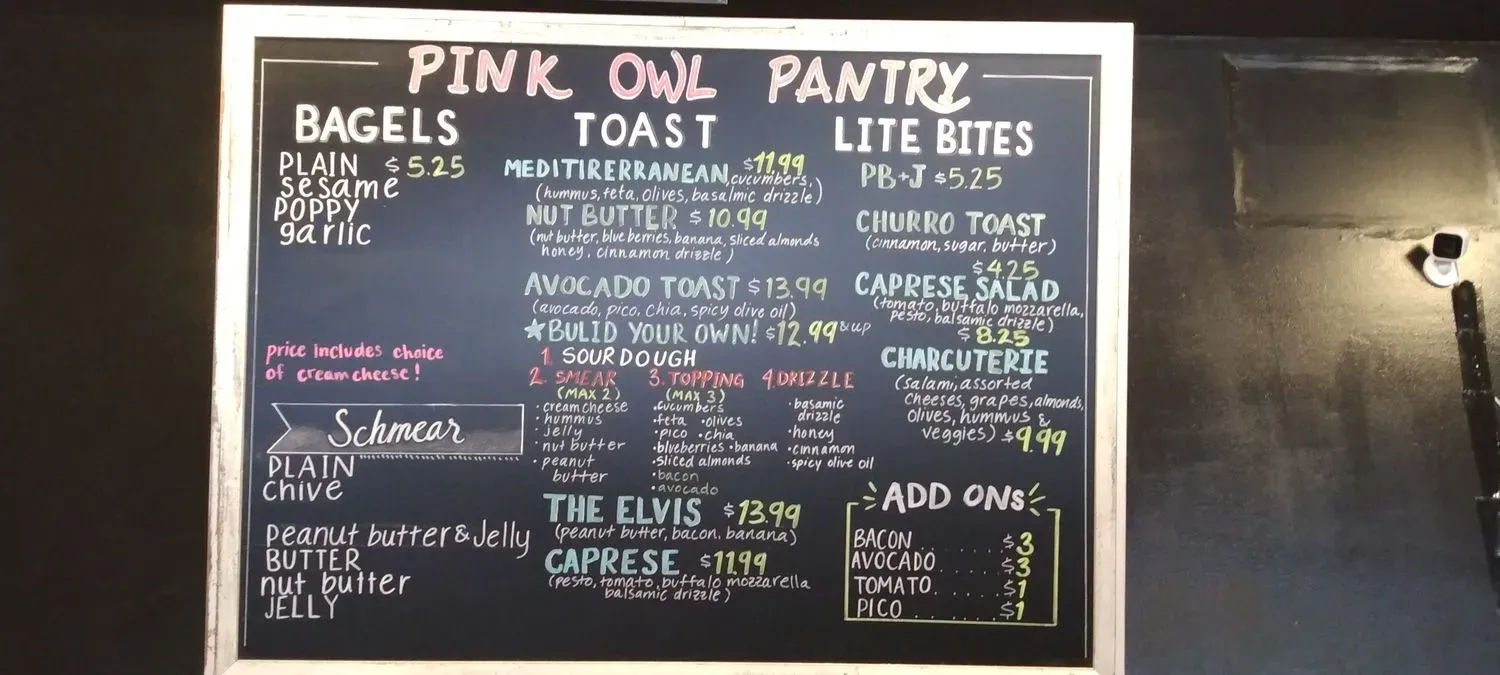 PINK OWL PANTRY
BAGELS
PLAIN $5.25
sesame
POPPY
garlic
price includes choice
of creamcheese!
Schmear
PLAIN
chive
peanut butter & Jelly
BUTTER
nut butter
JELLY
TOAST
MEDITIRERRANEAN $11.99
,cucumbers,
(hummus, feta, olives, basalmic drizzle)
NUT BUTTER $10.99
(nut butter, blueberries, banana, sliced almonds
honey, cinnamon drizzle)
AVOCADO TOAST $13.99
(avocado, pico, chia, spicy olive oil)
★BULID YOUR OWN! $12.99 & up
1. SOURDOUGH
2. SMEAR
(MAX 2)
· creamcheese
· hummus
· jelly
· nut butter
· peanut
butter
3. TOPPING
(MAX 3)
· cucumbers
· feta · olives
· pico · chia
· blueberries · banana
· sliced almonds
· bacon
· avocado
4. DRIZZLE
· basamic
drizzle
· honey
· cinnamon
· spicy olive oil
THE ELVIS $13.99
(peanut butter, bacon, banana)
CAPRESE $11.99
(pesto, tomato, buffalo mozzarella
balsamic drizzle)
LITE BITES
PB+J $5.25
CHURRO TOAST
(cinnamon, sugar, butter)
$4.25
CAPRESE SALAD
(tomato, buffalo mozzarella,
pesto, balsamic drizzle)
$8.25
CHARCUTERIE
(salami, assorted
cheeses, grapes, almonds,
olives, hummus &
veggies) $9.99
ADD ONs
BACON . . . . . . $3
AVOCADO . . . . $3
TOMATO . . . . . $1
PICO . . . . . . . $1